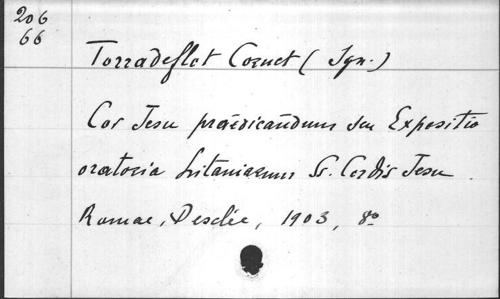 206
66
Torradeflot Cornet ( Ign. )
Cor Jesu praedicandum seu Expositio
oratoria Litaniarum Ss. Cordis Jesu
Romae, Desclée, 1903, 8º